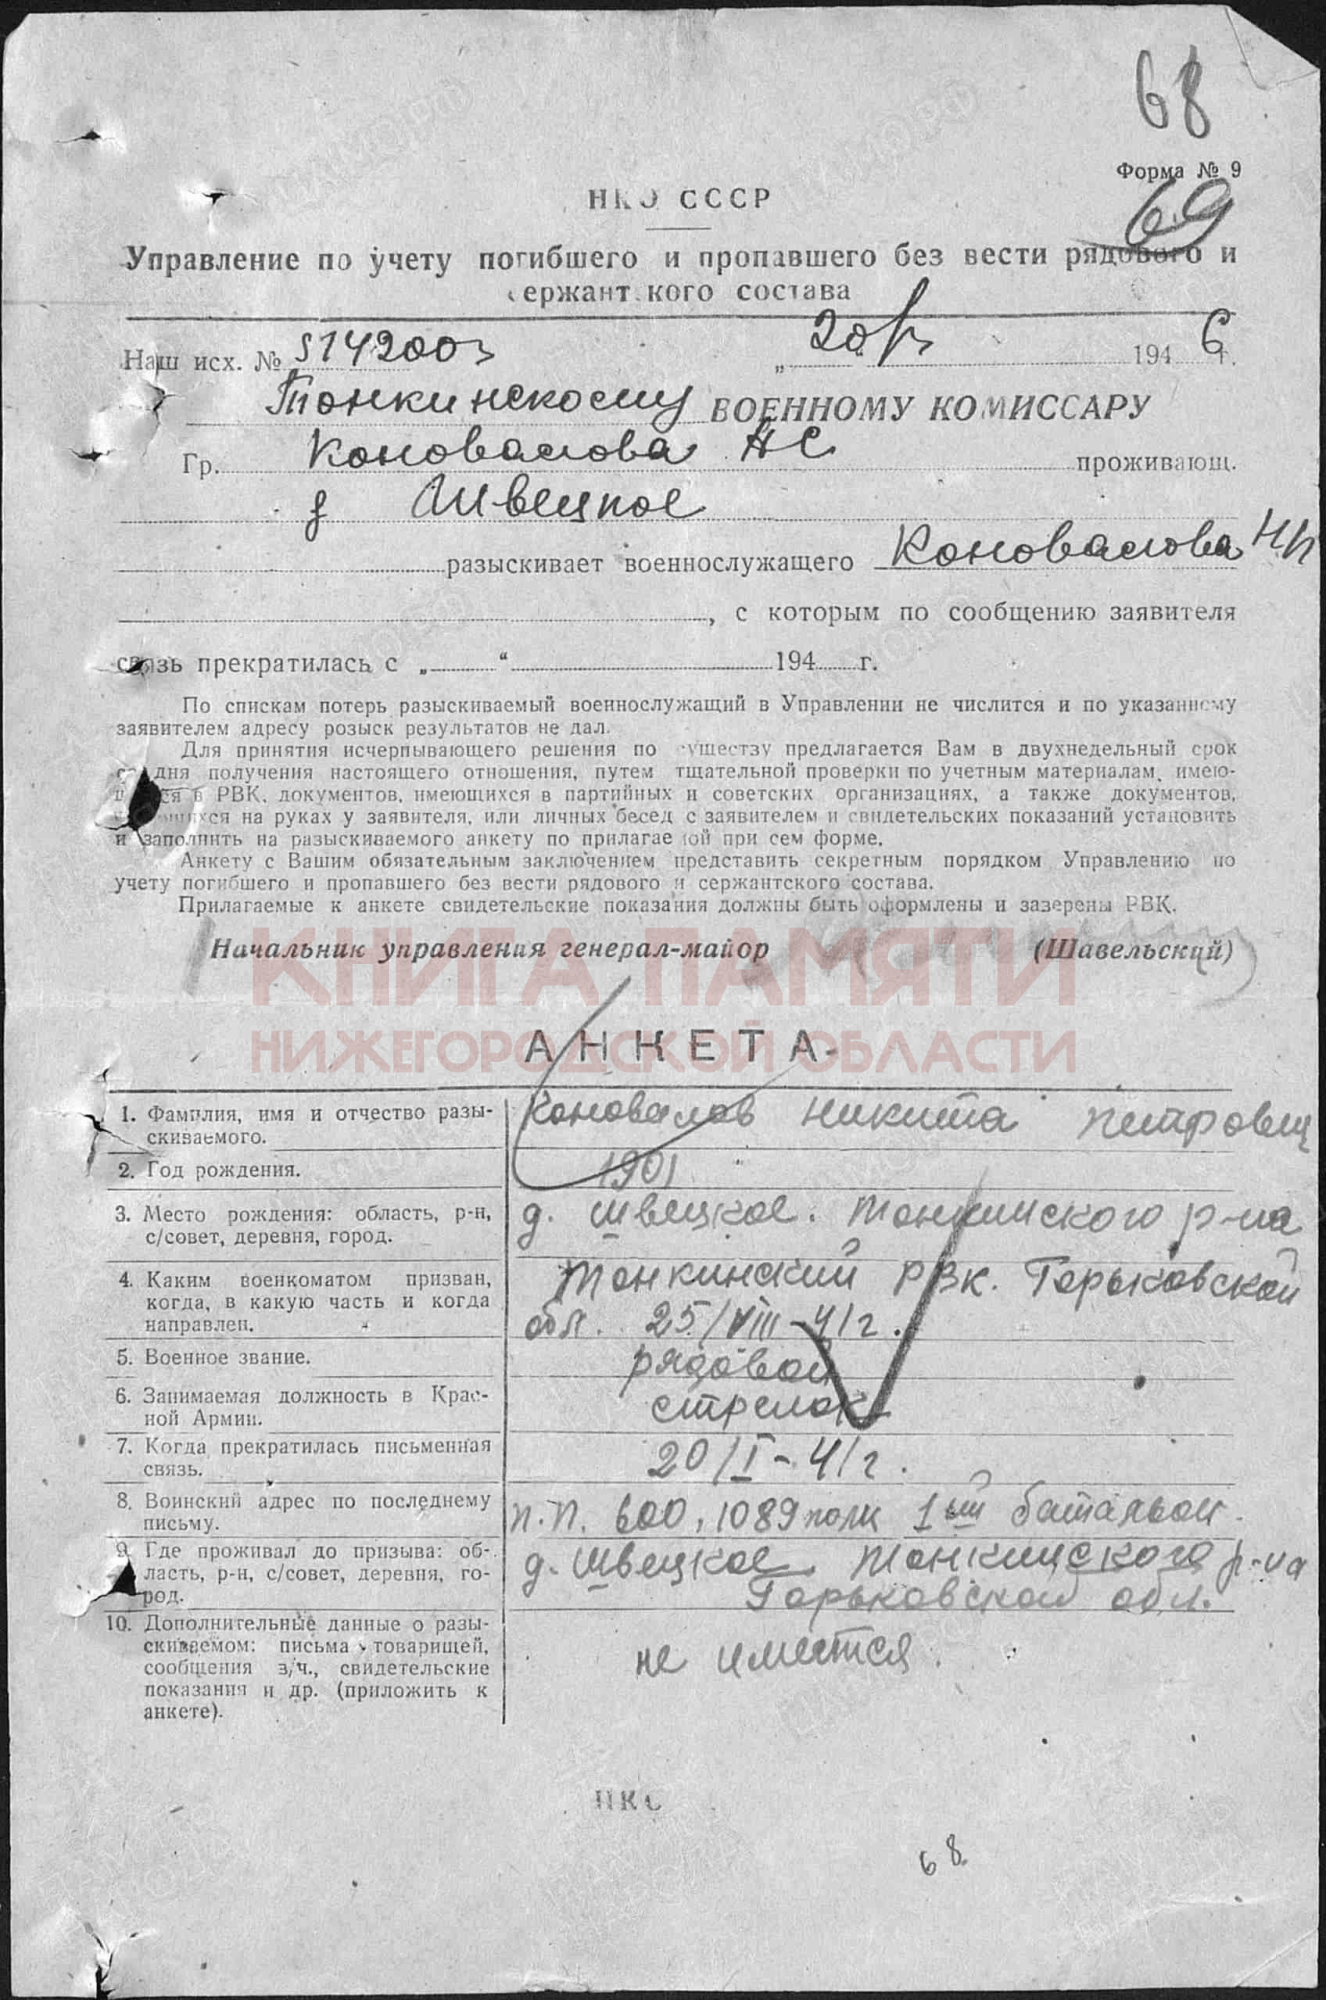 68
Форма № 9
69
НКО СССР
Управление по учету погибшего и пропавшего без вести рядового и
сержант кого состава
Наш исх. № 514200з „ 20/ 1946 г.
Тонкинскому ВОЕННОМУ КОМИССАРУ
Гр. Коновалова НС проживающ.
д Швецкое
разыскивает военнослужащего Коновалова НП
, с которым по сообщению заявителя
связь прекратилась с „ “ 194 г.
По спискам потерь разыскиваемый военнослужащий в Управлении не числится и по указанному
заявителем адресу розыск результатов не дал.
Для принятия исчерпывающего решения по существу предлагается Вам в двухнедельный срок
со дня получения настоящего отношения, путем тщательной проверки по учетным материалам, имею-
щихся в РВК, документов, имеющихся в партийных и советских организациях, а также документов,
имеющихся на руках у заявителя, или личных бесед с заявителем и свидетельских показаний установить
и заполнить на разыскиваемого анкету по прилагаемой при сем форме.
Анкету с Вашим обязательным заключением представить секретным порядком Управлению по
учету погибшего и пропавшего без вести рядового и сержантского состава.
Прилагаемые к анкете свидетельские показания должны быть оформлены и заверены РВК.
Начальник управления генерал-майор (Шавельский)
КНИГА ПАМЯТИ
НИЖЕГОРОДСКОЙ ОБЛАСТИ
АНКЕТА
1. Фамилия, имя и отчество разы-
скиваемого.
Коновалов Никита Петрович
2. Год рождения.
1901
3. Место рождения: область, р-н,
с/совет, деревня, город.
д. Швецкое. Тонкинского р-на
4. Каким военкоматом призван,
когда, в какую часть и когда
направлен.
Тонкинский РВК. Горьковской
обл. 25/VIII-41г.
5. Военное звание.
рядовой
6. Занимаемая должность в Крас-
ной Армии.
стрелок
7. Когда прекратилась письменная
связь.
20/I-41г.
8. Воинский адрес по последнему
письму.
п.п. 600, 1089 полк 1ый батальон.
9. Где проживал до призыва: об-
ласть, р-н, с/совет, деревня, го-
род.
д. Швецкое Тонкинского р-на
Горьковской обл.
10. Дополнительные данные о разы-
скиваемом: письма товарищей,
сообщения з/ч., свидетельские
показания и др. (приложить к
анкете).
не имеется.
ПКС
68